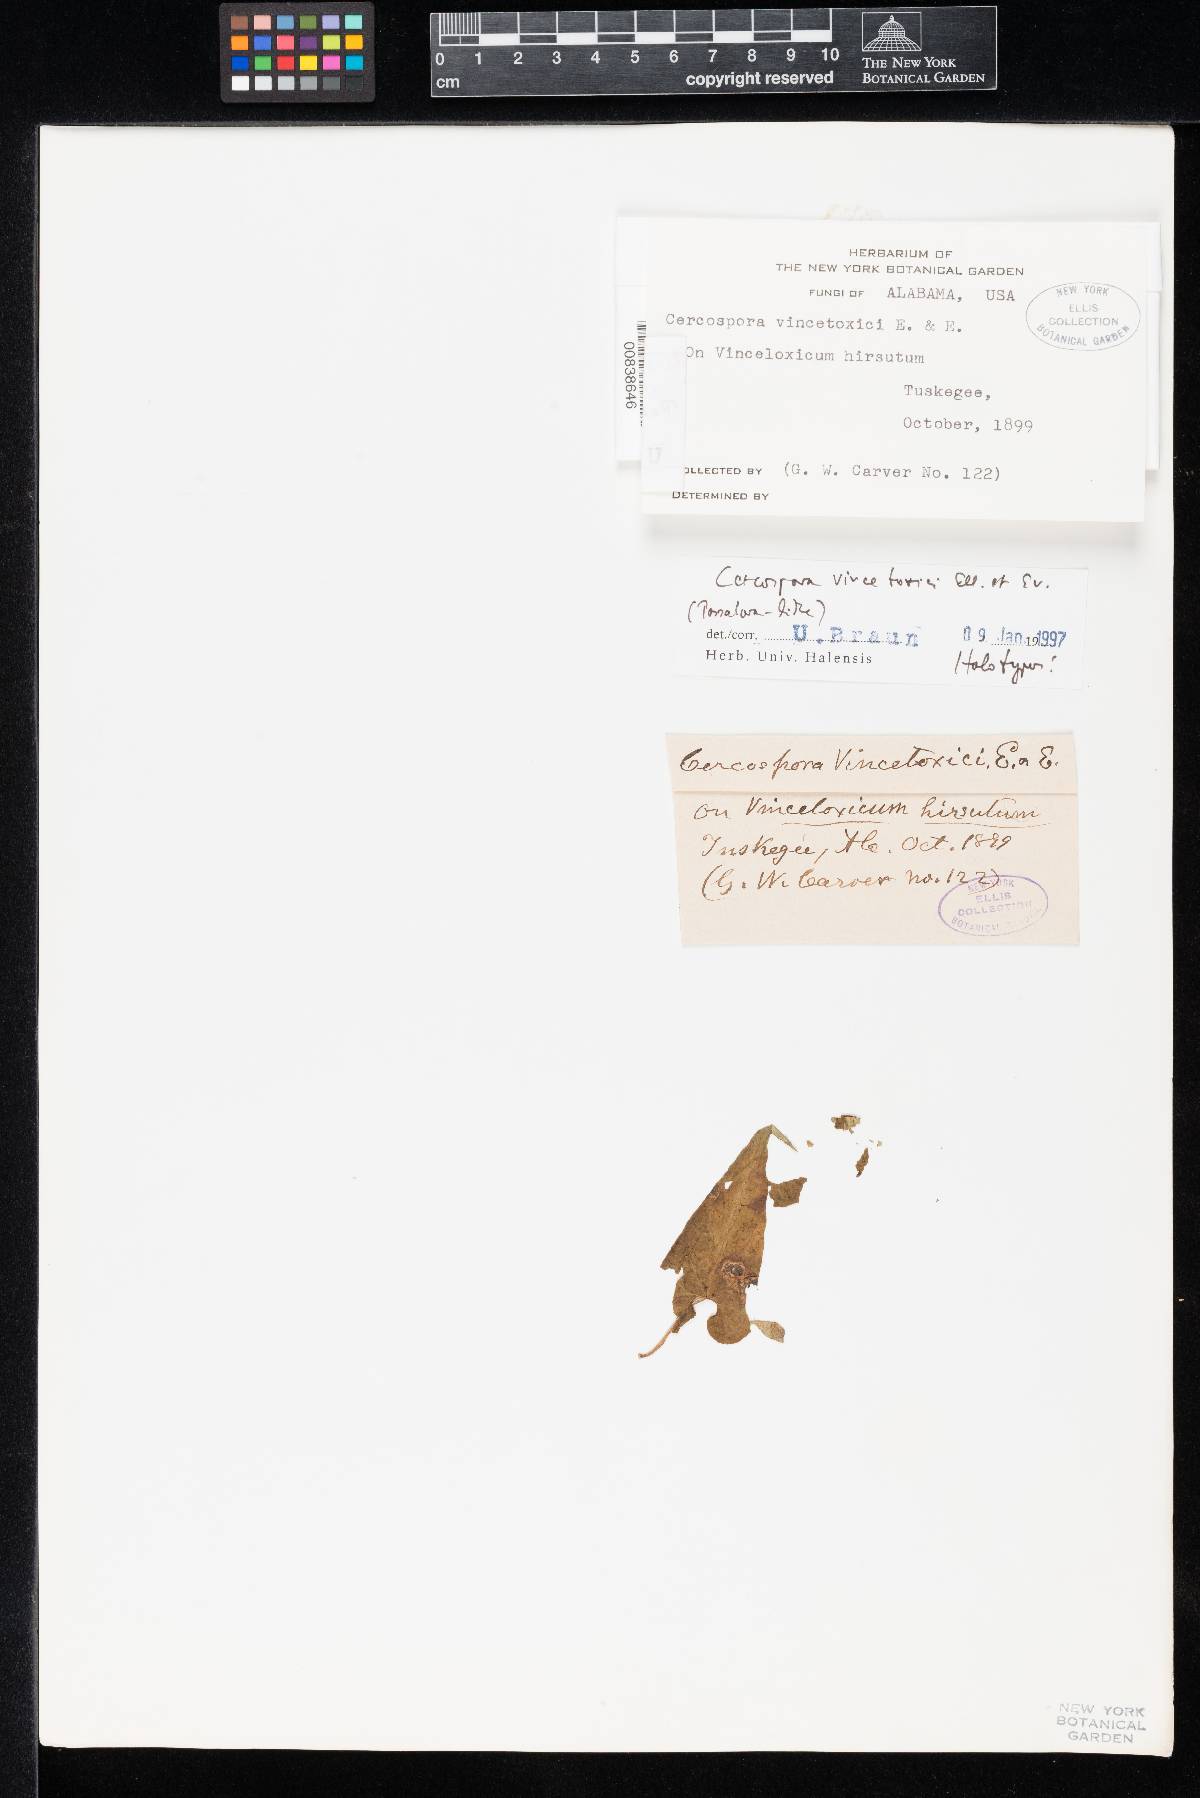 0 1 2 3 4 5 6 7 8 9 10
cm
copyright reserved
THE NEW YORK
BOTANICAL GARDEN
HERBARIUM OF
THE NEW YORK BOTANICAL GARDEN
FUNGI OF ALABAMA, USA
Cercospora vincetoxici E. & E.
On Vinceloxicum hirsutum
Tuskegee,
October, 1899
OLLECTED BY (G. W. Carver No. 122)
DETERMINED BY
NEW YORK
ELLIS
COLLECTION
BOTANICAL GARDEN
00838646
Cercospora vincetoxici Ell. et Ev.
(Passalora-like)
det./corr. U. Braun 09 Jan. 1997
Herb. Univ. Halensis
Holotypus!
Cercospora Vincetoxici, E. & E.
on Vincetoxicum hirsutum
Tuskegee, Ala. Oct. 1899
(G. W. Carver no. 122)
NEW YORK
ELLIS
COLLECTION
BOTANICAL
NEW YORK
BOTANICAL
GARDEN